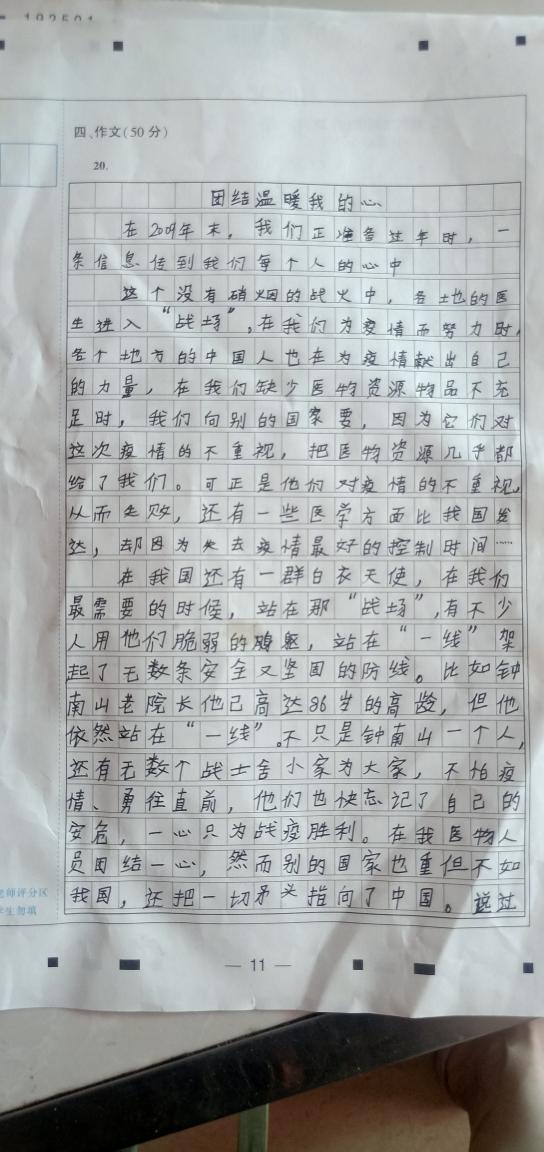 四、作文(50分)
20.
团结温暖我的心
在2009年末，我们正准备过年时，一
条信息传到我们每个人的心中
这个没有硝烟的战火中，各地的医
生进入“战场”，在我们为疫情而努力时，
各个地方的中国人也在为疫情献出自己
的力量，在我们缺少医物资源物品不充
足时，我们向别的国家要，因为它们对
这次疫情的不重视，把医物资源几乎都
给了我们。可正是他们对疫情的不重视，
从而失败，还有一些医学方面比我国发
达，却因为失去疫情最好的控制时间……
在我国还有一群白衣天使，在我们
最需要的时候，站在那“战场”，有不少
人用他们脆弱的身躯，站在“一线”架
起了无数条安全又坚固的防线。比如钟
南山老院长他已高达86岁的高龄，但他
依然站在“一线”。不只是钟南山一个人，
还有无数个战士舍小家为大家，不怕疫
情、勇往直前，他们也快忘记了自己的
安危，一心只为战疫胜利。在我医物人
员团结一心，然而别的国家也重但不如
我国，还把一切矛头指向了中国。说过
老师评分区
学生勿填
— 11 —